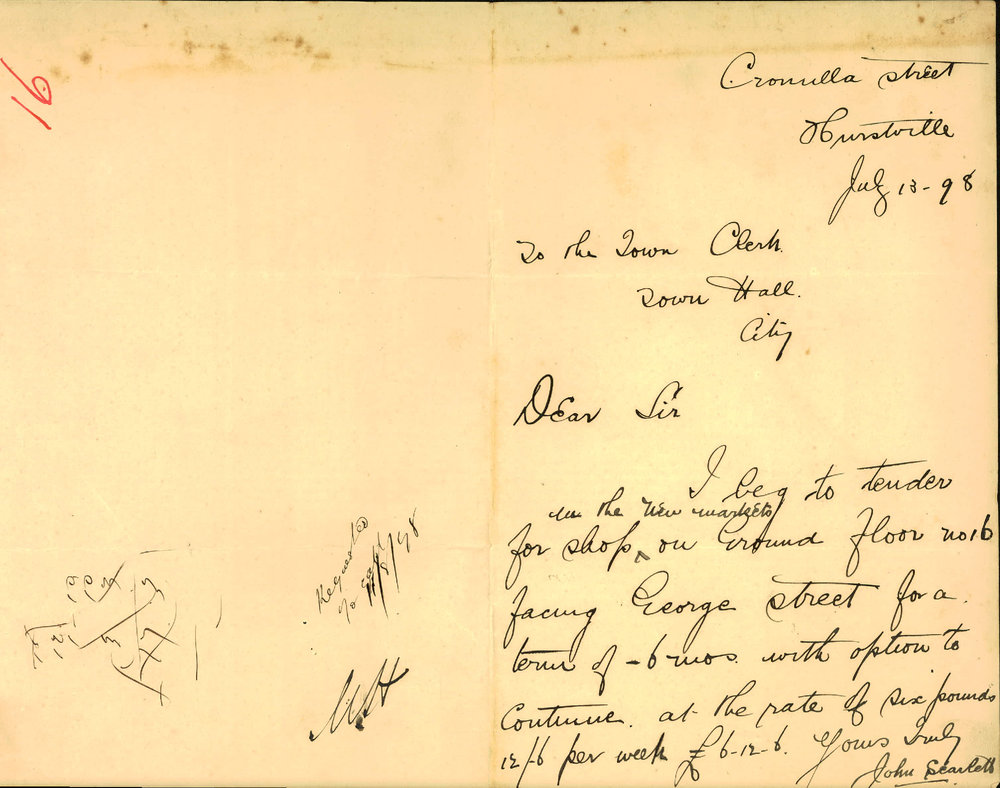 16
Cronulla street
Hurstville
July 13-98
To the Town Clerk.
Town Hall.
City
Dear Sir
I beg to tender
in the New markets
for shop ^ on Ground Floor no 16
facing George street for a
term of -6 mos. with option to
Continue. at the rate of six pounds
12/-6 per week £6-12-6. Yours Truly
John Scarlett
Requested
to call
11/8/98